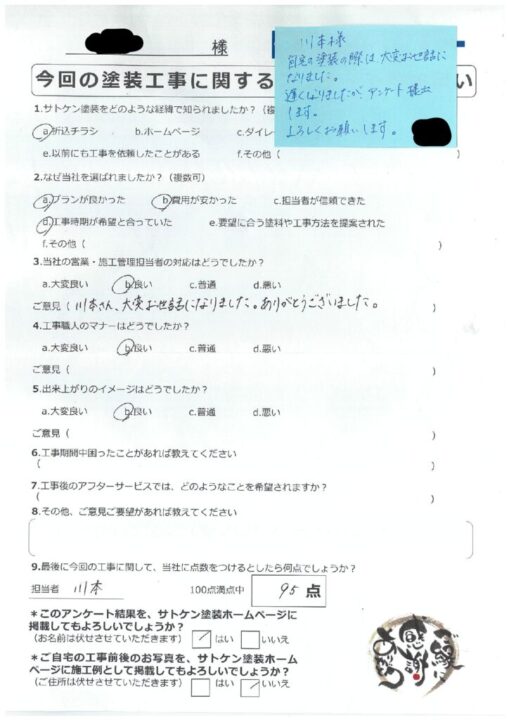 様
川本様
自宅の塗装の際は大変お世話に
なりました。
遅くなりましたが、アンケート提出
します。
よろしくお願いします。
今回の塗装工事に関する
い
1.サトケン塗装をどのような経緯で知られましたか？（複
a.折込チラシ b.ホームページ c.ダイレ
e.以前にも工事を依頼したことがある f.その他（
2.なぜ当社を選ばれましたか？（複数可）
a.プランが良かった b.費用が安かった c.担当者が信頼できた
d.工事時期が希望と合っていた e.要望に合う塗料や工事方法を提案された
f.その他（ ）
3.当社の営業・施工管理担当者の対応はどうでしたか？
a.大変良い b.良い c.普通 d.悪い
ご意見（川本さん、大変お世話になりました。ありがとうございました。）
4.工事職人のマナーはどうでしたか？
a.大変良い b.良い c.普通 d.悪い
ご意見（ ）
5.出来上がりのイメージはどうでしたか？
a.大変良い b.良い c.普通 d.悪い
ご意見（ ）
6.工事期間中困ったことがあれば教えてください
（ ）
7.工事後のアフターサービスでは、どのようなことを希望されますか？
（ ）
8.その他、ご意見ご要望があれば教えてください
9.最後に今回の工事に関して、当社に点数をつけるとしたら何点でしょうか？
担当者 川本 100点満点中 95 点
＊このアンケート結果を、サトケン塗装ホームページに
掲載してもよろしいでしょうか？
（お名前は伏せさせていただきます） はい いいえ
＊ご自宅の工事前後のお写真を、サトケン塗装ホーム
ページに施工例として掲載してもよろしいでしょうか？
（ご住所は伏せさせていただきます） はい いいえ
ご縁に
感謝
ありがとう